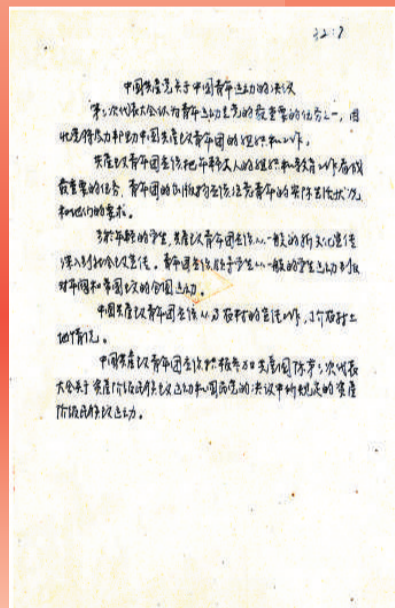 32:7
中国共产党关于中国青年运动的决议
第三次代表大会认为青年运动是党的最重要的任务之一，因
此党得尽力帮助中国共产主义青年团的组织和工作。
共产主义青年团应该把年轻工人的组织和教育工作看成
最重要的任务。青年团的出版物应该注意青年的实际生活状况
和他们的要求。
对于年轻的学生，共产主义青年团应该从一般的新文化宣传
深入到社会主义宣传。青年团应该给予学生从一般的学生运动到反
对军阀和帝国主义的国运动。
中国共产主义青年团应该从乡农村的宣传工作，了农村土
地情况。
中国共产主义青年团应该积极参加共产国际第三次代表
大会关于资产阶级民族主义运动和国民党的决议中所规定的资产
阶级民族主义运动。